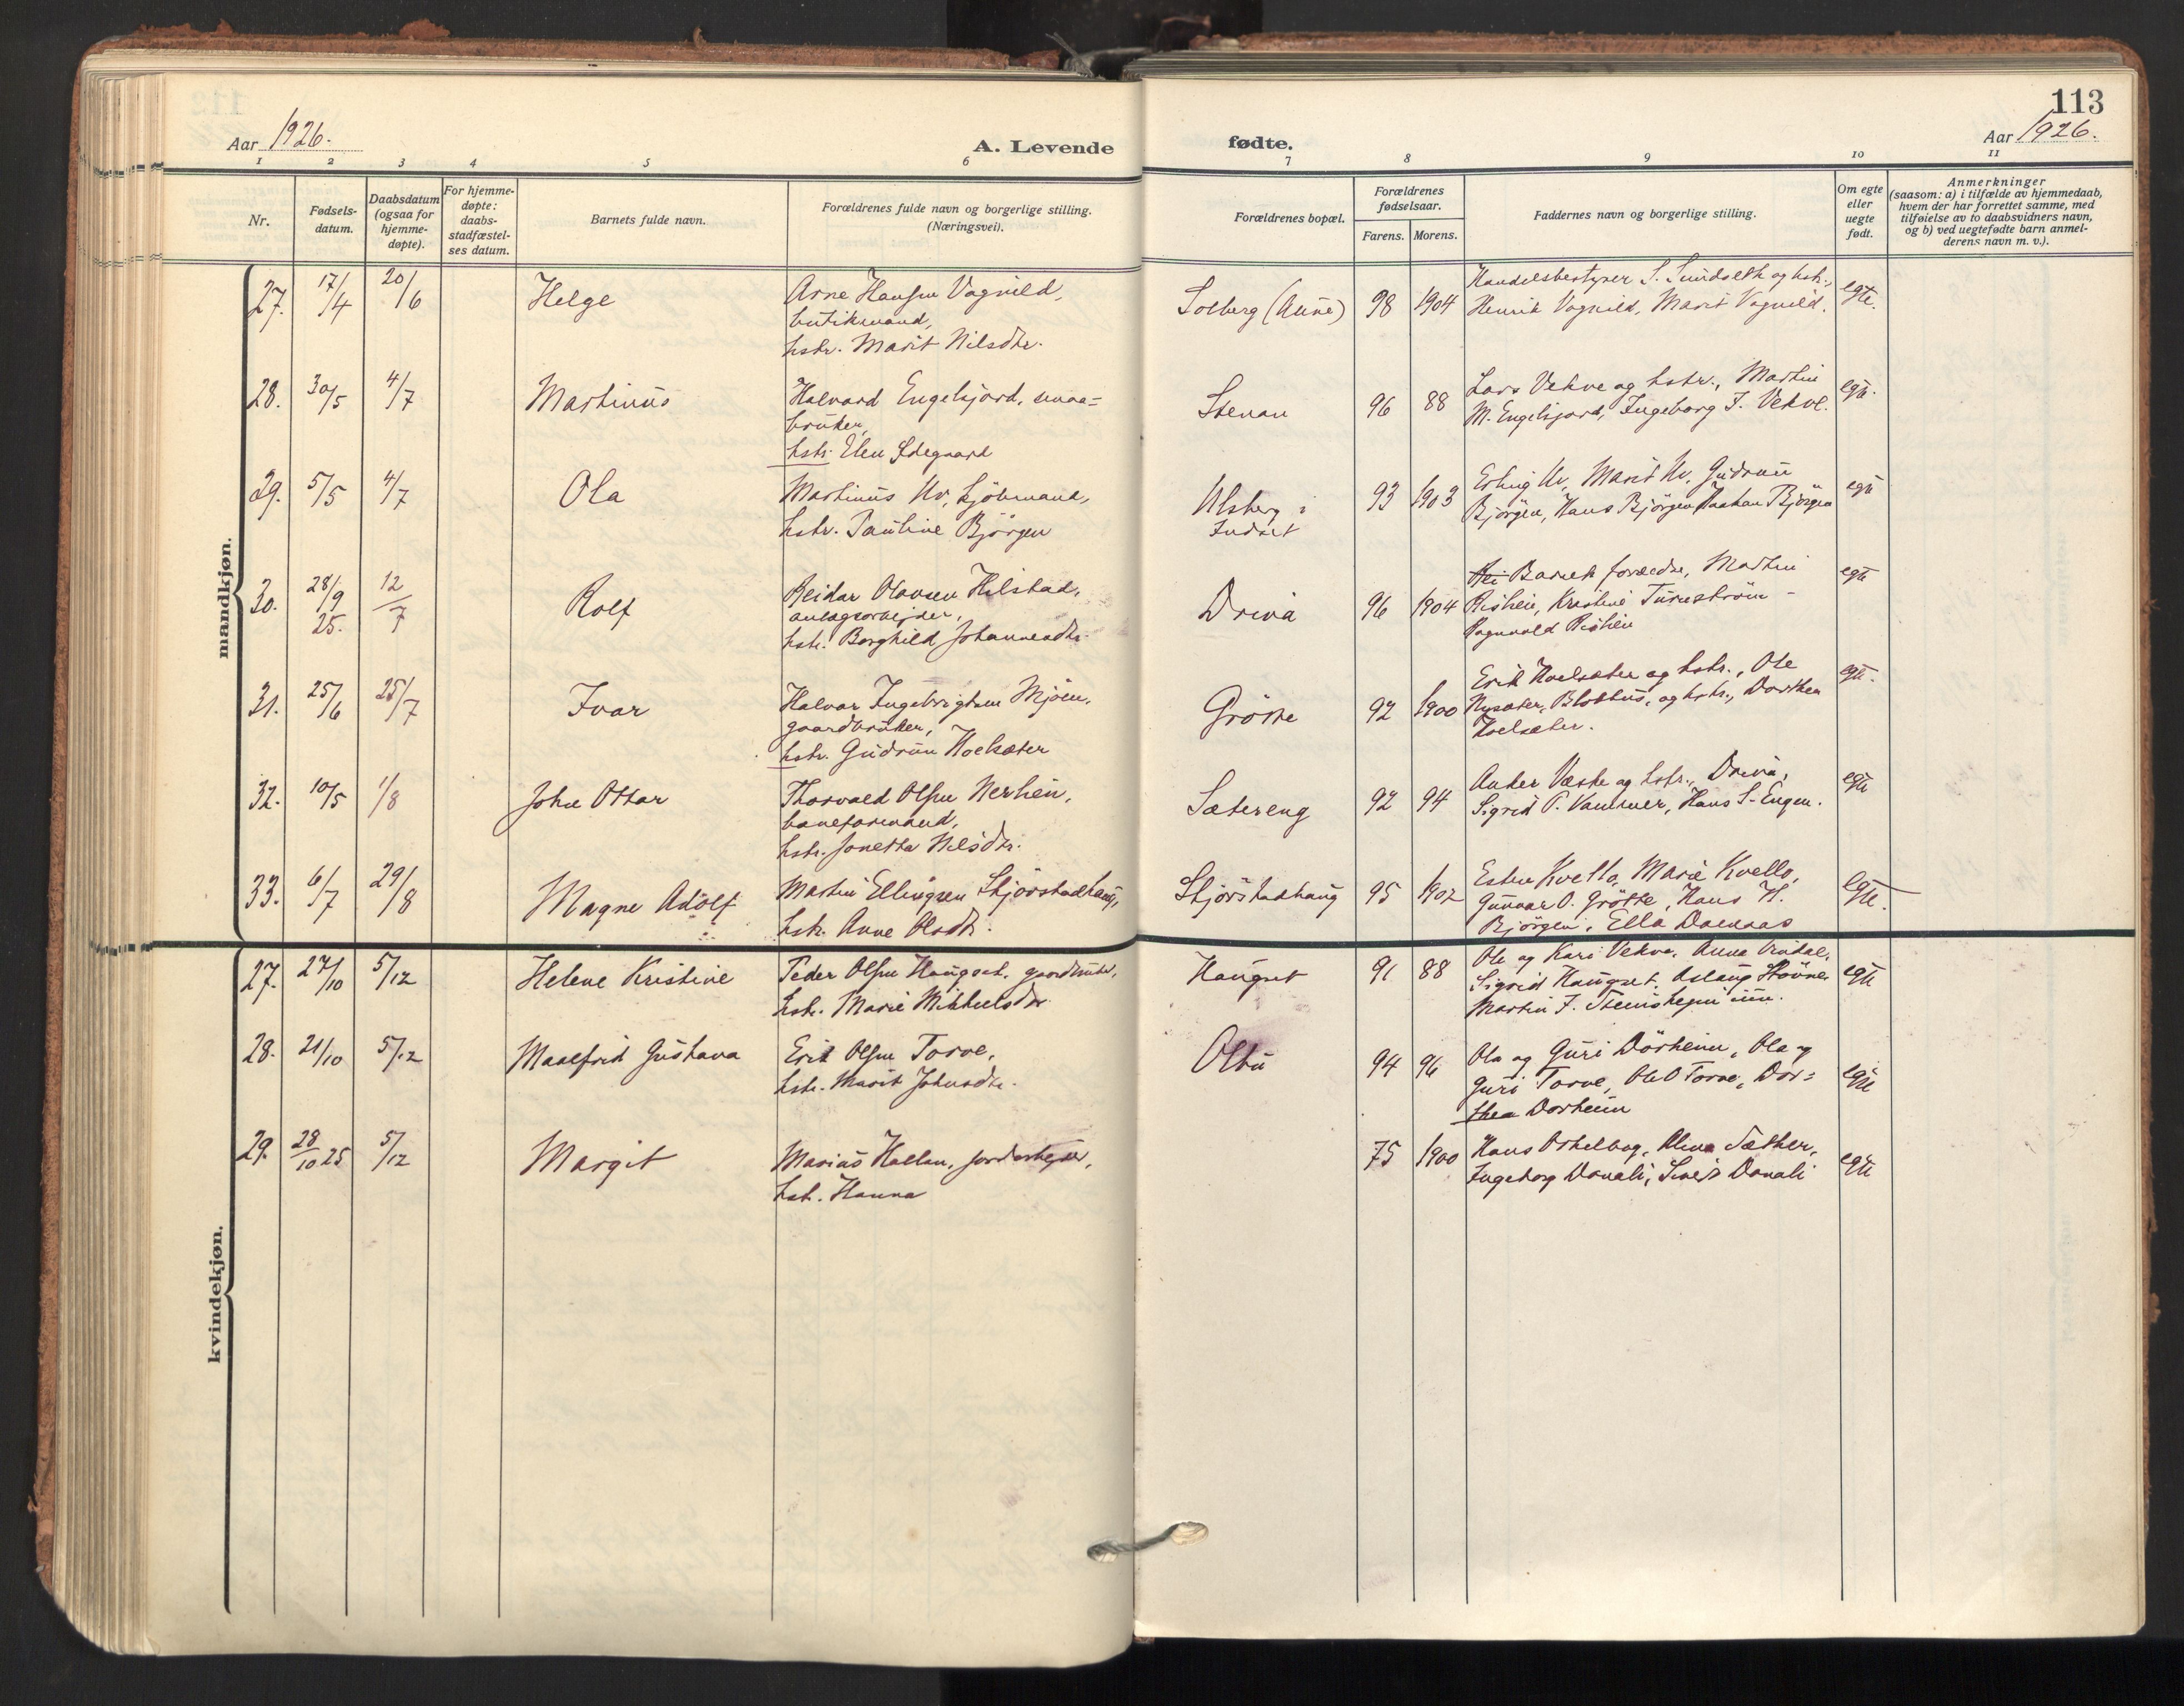 113
Aar 1926.
A. Levende
fødte.
Aar 1926.
1 2 3 4 5 6 7 8 9 10 11
Nr.
Fødsels-
datum.
Daabsdatum
(ogsaa for
hjemme-
døpte).
For hjemme-
døpte:
daabs-
stadfæstel-
ses datum.
Barnets fulde navn.
Forældrenes fulde navn og borgerlige stilling.
(Næringsvei).
Forældrenes bopæl.
Forældrenes
fødselsaar.
Farens. Morens.
Faddernes navn og borgerlige stilling.
Om egte
eller
uegte
født.
Anmerkninger
(saasom: a) i tilfælde av hjemmedaab,
hvem der har forrettet samme, med
tilføielse av to daabsvidners navn,
og b) ved uegtefødte barn anmel-
derens navn m. v.).
mandkjøn.
27. 17/4 20/6 Helge
Arne Hansen Vognild,
butikmand,
hstr. Marit Nilsdtr.
Solberg (Aune) 98 1904
Handelsbestyrer S. Sundseth og hstr.,
Henrik Vognild, Marit Vognild.
egte.
28. 30/5 4/7 Martinus
Halvard Engelsjord, smaa=
bruker,
hstr. Elen Ødegaard
Stenan 96 88
Lars Vekve og hstr., Martin
M. Engelsjord, Ingeborg J. Vekve.
egte.
29. 5/5 4/7 Ola
Martinus Uv,
hstr. Pauline Bjørgen
Ulsberg i
Indset
93 1903
Erling Uv, Marit Uv, Gudrun
Bjørgen, Hans Bjørgen, Haakon Bjørgen
egte
30. 28/9 25. 12/7 Rolf
Reidar Olavsen Hilstad,
anlægsarbejder,
hstr. Borghild Johannesdtr.
Driva 96 1904
Barnets forældre, Martin
Risheim, Kristine
Ragnvald Risheim
egte
31. 25/6 25/7 Ivar
Halvar Ingebrigtsen Mjøen,
gaardbruker,
hstr. Gudrun Hoelsæter
Grøtte 92 1900
Erik Hoelsæter og hstr., Ole
Nysæter, og hstr., Dorthea
Hoelsæter.
egte.
32. 10/5 1/8 John Ottar
Thorvald Olsen Nerhein,
baneformand,
hstr. Jonetta Nilsdtr.
Sætereng 92 94
Anker Væske og hstr., Driva,
Sigrid P. Vammer, Hans S. Engen.
egte
33. 6/7 29/8 Magne Adolf
Martin Ellingsen Skjørstadhaug,
hstr. Anne Olsdtr.
Skjørstadhaug 95 1902
Esten Kvello, Marie Kvello,
Gunnar O. Grøtte, Hans H.
Bjørgen, Ella Dalenaas
egte.
kvindekjøn.
27. 27/10 5/12 Helene Kristine
Peder Olsen Haugset, gaardbruker,
hstr. Marie Mikkelsdtr
Haugset 91 88
Ole og Kari Vekve, Anne
Sigrid Haugset, Aslaug
Martin J.
egte
28. 21/10 5/12 Maalfrid Gustava
Erik Olsen Torve,
hstr. Marit Johnsdtr.
Olbu 94 96
Ola og Guri Dørheim, Ola og
Guri Torve, Ole O Torve, Dor=
thea Dørheim
egte
29. 28/10 25 5/12 Margit
Marius Hallan, jordarbejder,
hstr. Hanna
75 1900
Hans Oskelhaug, Sæther,
Ingeborg Donali, Donali
egte